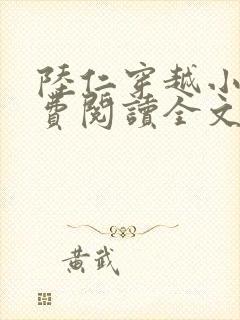 陸仁穿越小
費閱讀全文
黃武